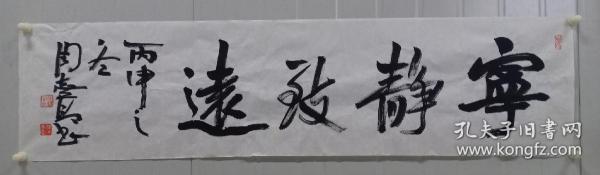 寧静致遠
丙申之
冬
周志高书
孔夫子旧书网
www.kongfz.com